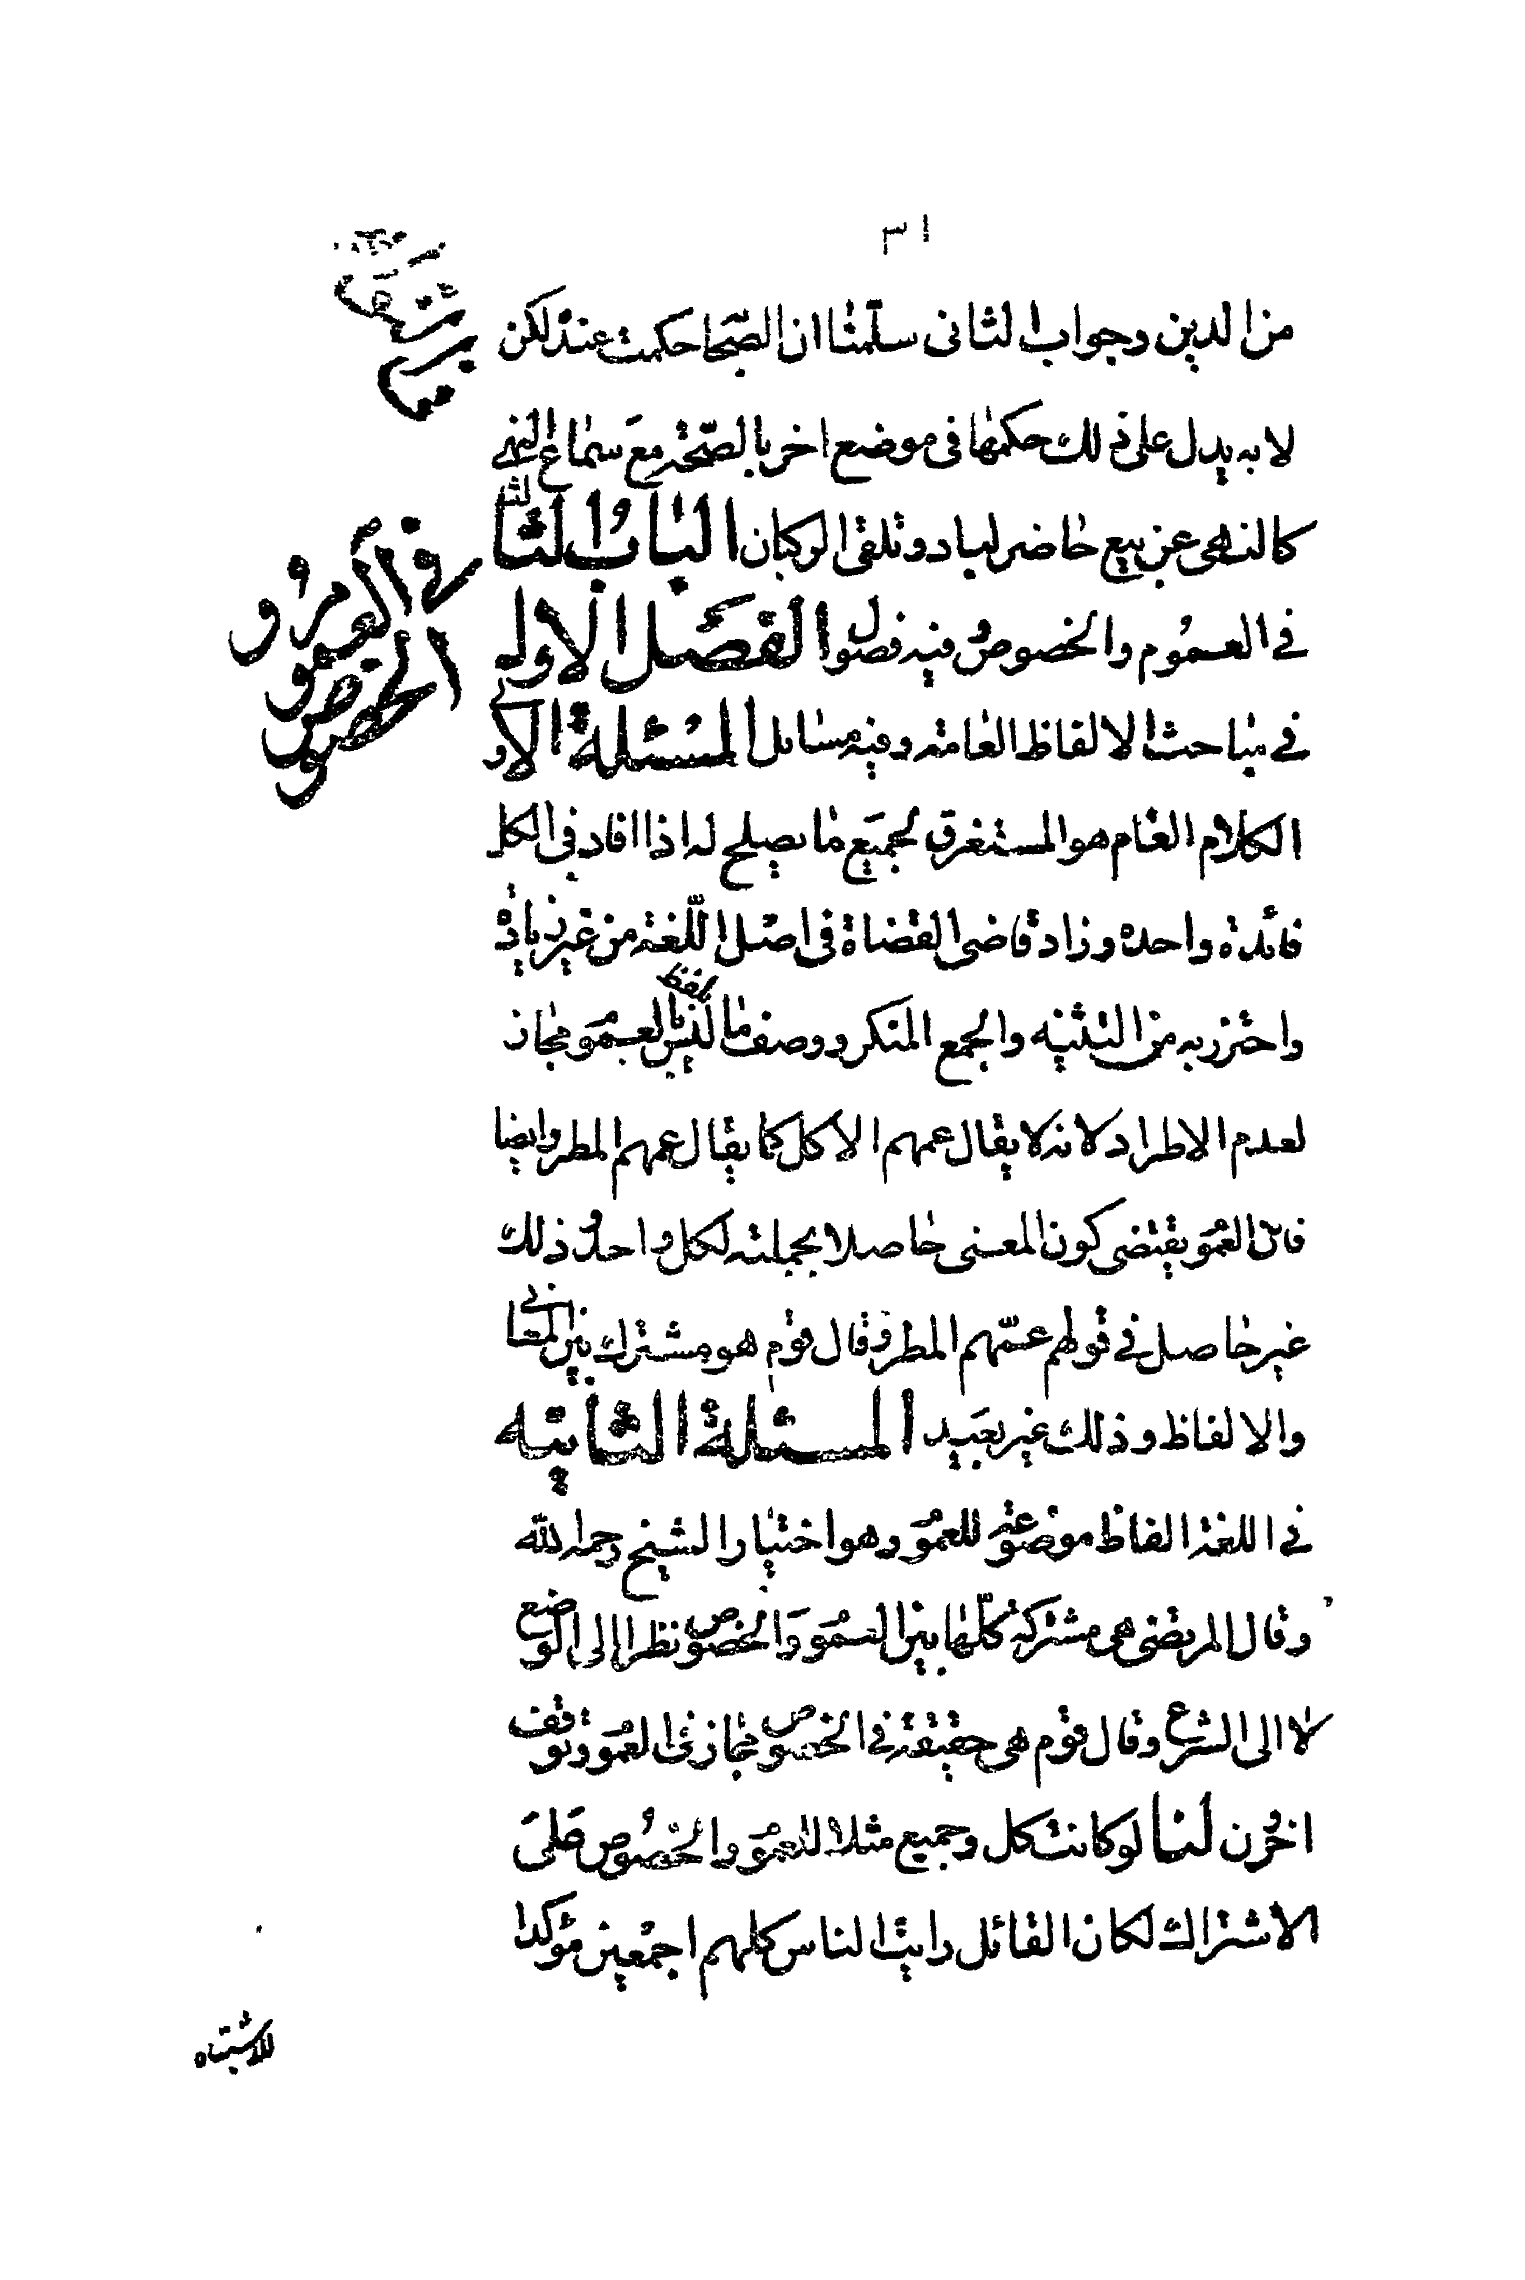 ٣١
من الدين وجواب الثانى سلمنا ان الصّحا حكمت عنده لكن
لا به يدل على ذلك حكمها فى موضع اخر بالصّحة مع سماع النهى
كالنهى عن بيع حاضر لباد وتلقى الركبان الباب الثا
فى العموم والخصوص وفيه فصول الفصل الاول
فى مباحث الالفاظ العامة وفيه مسائل المسئلة الاولى
الكلام العام هو المستغرق لجميع ما يصلح له اذا افاد فى الكل
فائدة واحده وزاد قاضى القضاة فى اصل اللّغة من غير زيادة
واحترز به من التثنيه والجمع المنكر ووصف ما ليس بلفظ بالعمو مجاز
لعدم الاطراد لانه لا يقال عمهم الاكل كما يقال عمهم المطر وايضا
فان العمو يقتضى كون المعنى حاصلا بجملته لكل واحد وذلك
غير حاصل فى قولهم عمّهم المطر وقال قوم هو مشترك بين المعانى
والالفاظ وذلك غير بعيد المسئلة الثانيه
فى اللغة الفاظ موضوعة للعمو وهو اختيار الشيخ رحمه الله
وقال المرتضى هى مشتركة كلّها بين العمو والخصوص نظرا الى الوضع
لا الى الشرع وقال قوم هى حقيقة فى الخصوص مجاز فى العمو وتوقف
اخرون لنا لو كانت كل وجميع مثلا للعمو والخصوص على
الاشتراك لكان القائل رايت الناس كلهم اجمعين مؤكدا
فى العموم و
الخصوص
للاشتباه